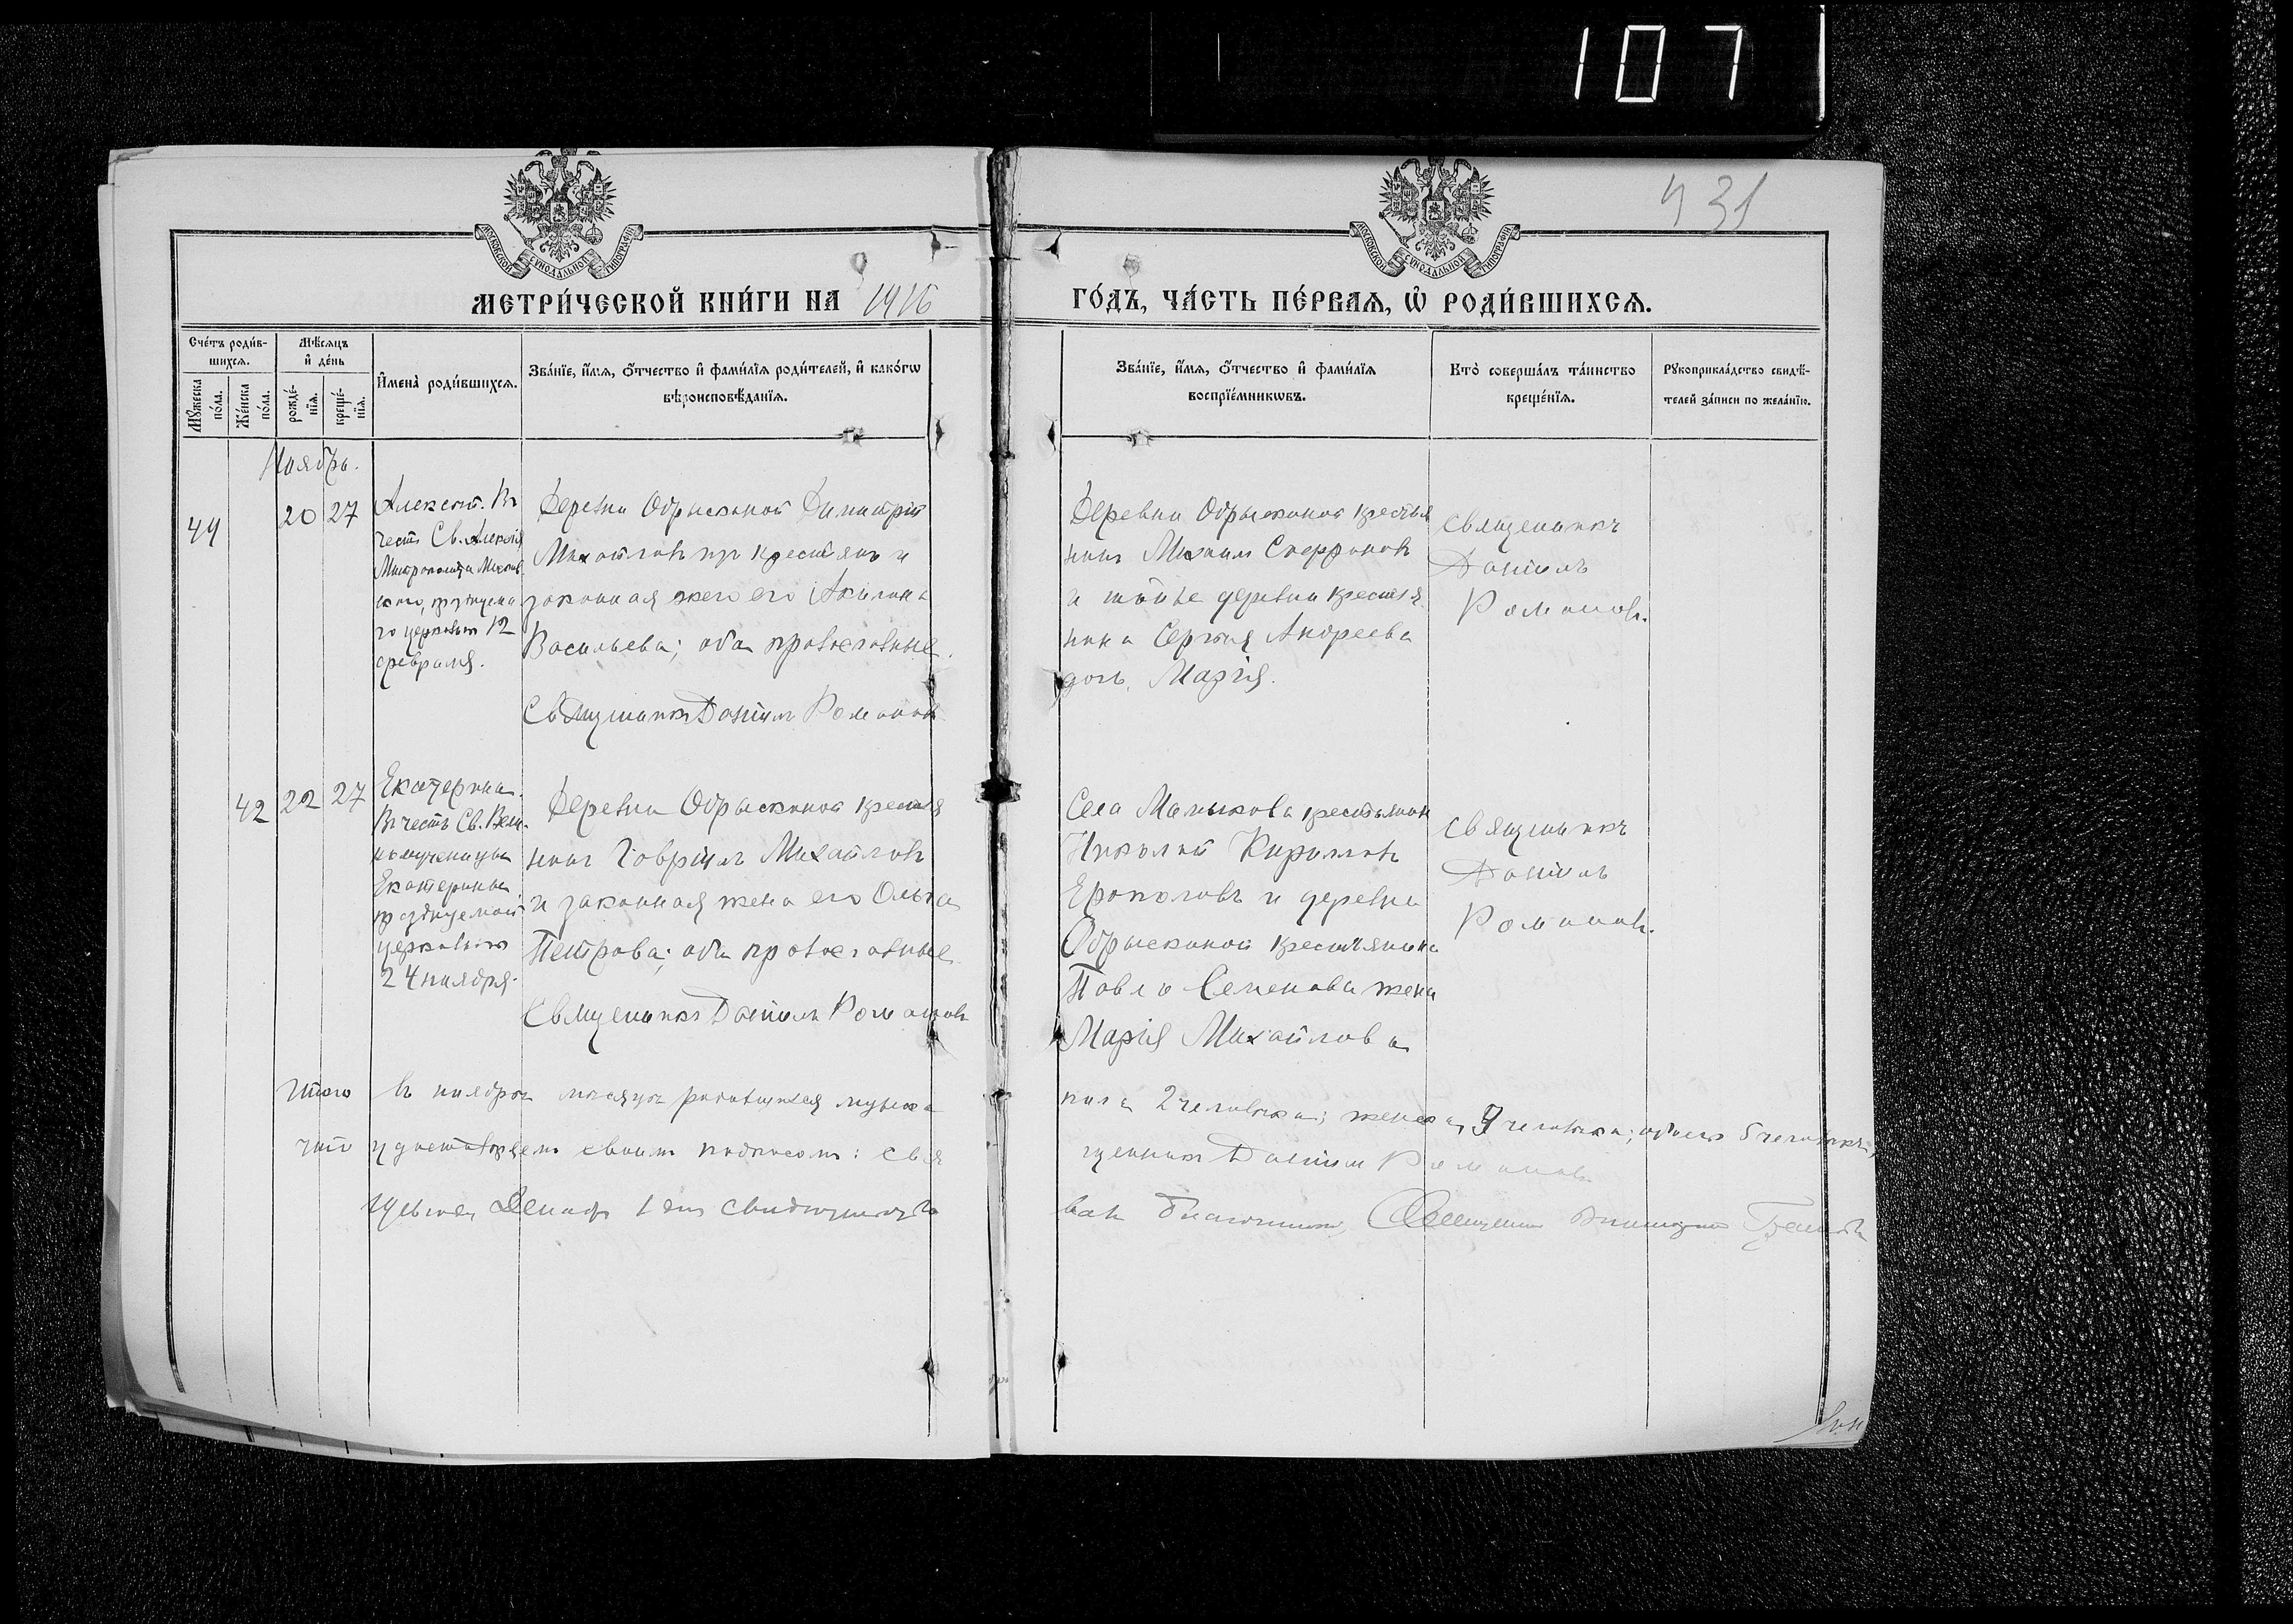 107
431
МОСКОВСКОЙ СѴНОДАЛЬНОЙ ТИПОГРАФІИ
МОСКОВСКОЙ СѴНОДАЛЬНОЙ ТИПОГРАФІИ
МЕТРИ́ЧЕСКОЙ КНИ́ГИ НА 1916
ГО́ДЪ, ЧА́СТЬ ПЕ́РВАѦ, Ѡ҆ РОДИ́ВШИХСѦ.
Сче́тъ роди́в-
шихсѧ.
Мꙋ́жеска по́ла.
Же́нска по́ла.
Мѣ́сѧцъ
и҆ де́нь
рожде́-нїѧ.
креще́-нїѧ.
И҆мена̀ роди́вшихсѧ.
Зва́нїе, и҆́мѧ, ѻ҆́тчество и҆ фами́лїѧ роди́телей, и҆ како́гѡ
вѣроисповѣ́данїѧ.
Зва́нїе, и҆́мѧ, ѻ҆́тчество и҆ фами́лїѧ
воспрїе́мникѡвъ.
Кто̀ соверша́лъ та́инство
креще́нїѧ.
Рꙋкоприкла́дство свидѣ́-
телей за́писи по жела́нїю.
Ноябрь.
44
20 27
Алексѣй. Въ
честь Св. Алексія
Митрополита Москов
скаго, празднуема
го церковью 12
февраля.
Деревни Обрыскиной Димитрій
Михайловъ кр крестьянъ и
законная жего его Акилина
Васильева; оба православные.
Священникъ Даніилъ Романовъ
Деревни Обрыскиной крестья
нинъ Михаилъ
и той же деревни крестья
нина Сергія Андреева
дочь, Марія.
Священникъ
Даніилъ
Романовъ.
42 22 27
Екатерина.
Въ честь Св. Вели-
комученицы
Екатерины,
празднуемой
церковью
24 ноября.
Деревни Обрыскиной крестья
нинъ Гавріилъ Михайловъ
и законная жена его Ольга
Петрова; оба православные
Священникъ Даніилъ Романовъ
Села Мамыкова крестьянин
Николай Кирилловъ
и деревни
Обрыскиной крестьянина
Павла Семенова жена
Марія Михайлова
Священникъ
Даніилъ
Романовъ.
Итого въ ноябрѣ мѣсяцѣ родившихся мужска
пола 2 человѣка; женска, 3 человѣка; обоего 5 человѣкъ,
что удостовѣряемъ своимъ подписомъ: Свя
щенникъ Даніилъ Романовъ
1916 года, Декабр 1 дня свидѣтельство
валъ Благочинный, Священникъ